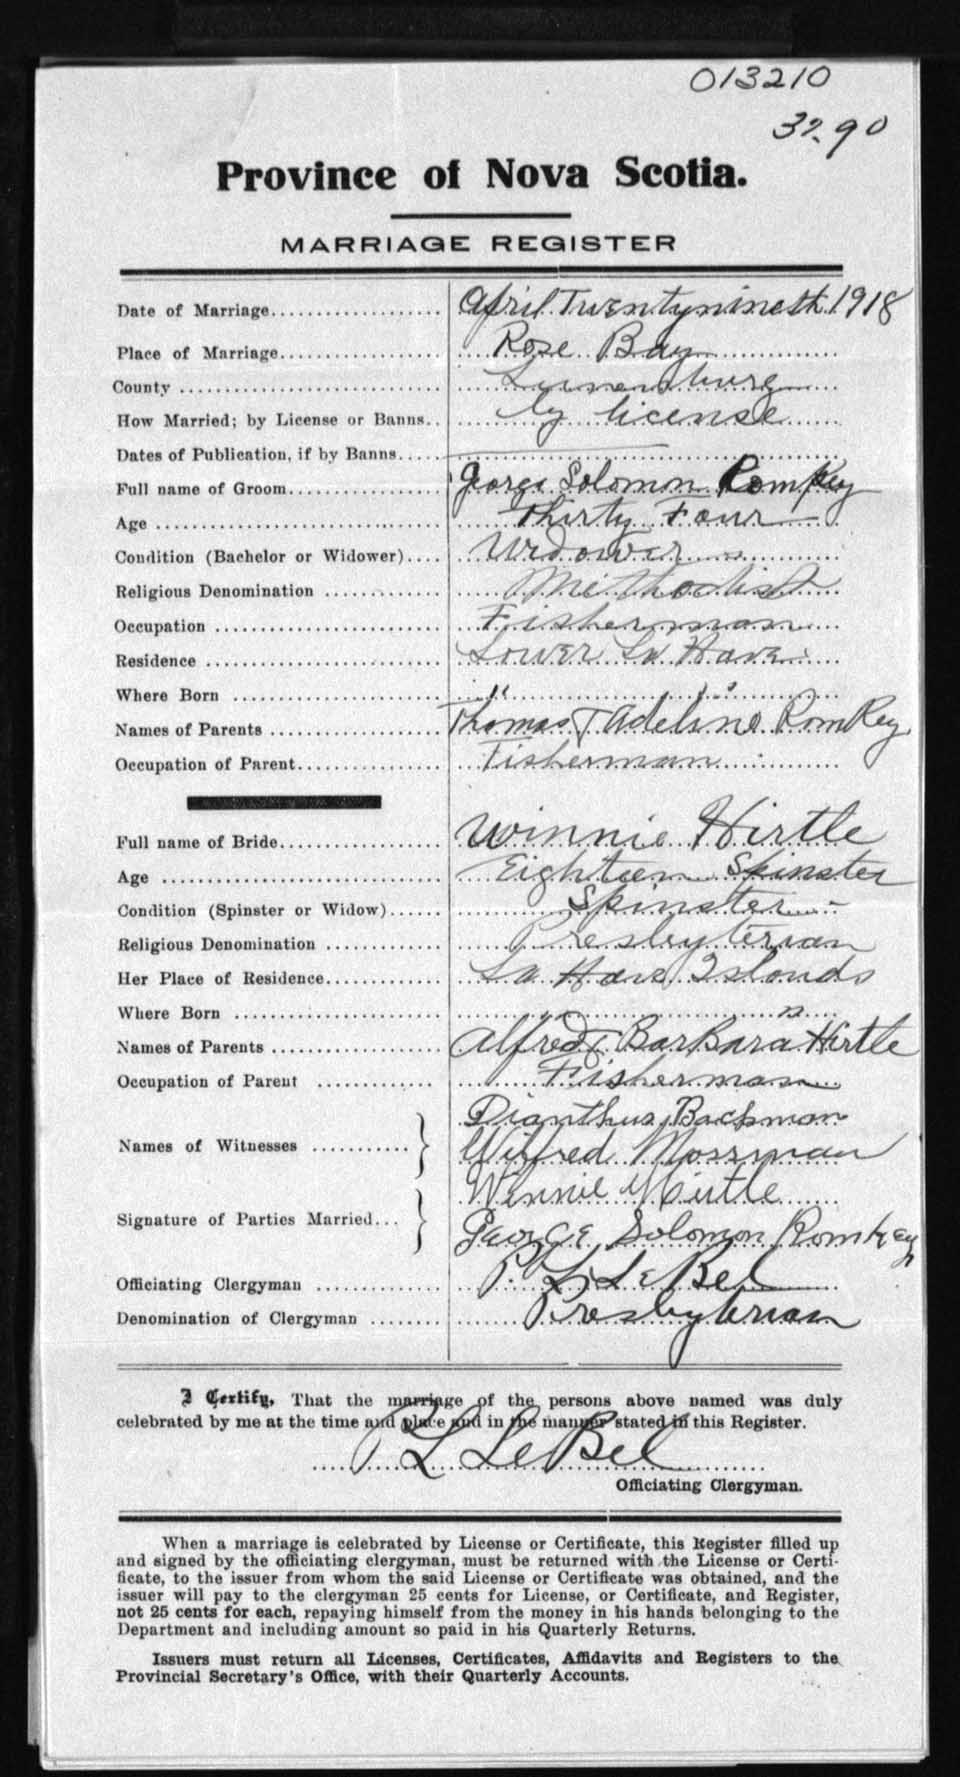 013210
3290
Province of Nova Scotia.
MARRIAGE REGISTER
Date of Marriage.................... April Twentynineth 1918
Place of Marriage.................. Rose Bay
County .............................. Lunenburg
How Married; by License or Banns.. by license
Dates of Publication, if by Banns.....
Full name of Groom.................. George Solomon Romkey
Age ................................. Thirty Four
Condition (Bachelor or Widower).... Widower
Religious Denomination ............. Methodist
Occupation .......................... Fisherman
Residence ........................... Lower La Have
Where Born ........................ " "
Names of Parents .................... Thomas & Adeline Romkey
Occupation of Parent................. Fisherman
Full name of Bride................... Winnie Hirtle
Age ................................. Eighteen Spinster
Condition (Spinster or Widow)...... Spinster
Religious Denomination ............. Presbyterian
Her Place of Residence.............. La Have Islands
Where Born ........................ " "
Names of Parents .................... Alfred & Barbara Hirtle
Occupation of Parent ............... Fisherman
Names of Witnesses ........... } Dianthus Backman
Wilfred Mossman
Signature of Parties Married... } Winnie Hirtle
George Solomon Romkey
Officiating Clergyman .............. P. L. LeBel
Denomination of Clergyman ........ Presbyterian
I Certify, That the marriage of the persons above named was duly
celebrated by me at the time and place and in the manner stated in this Register.
P L LeBel
Officiating Clergyman.
When a marriage is celebrated by License or Certificate, this Register filled up
and signed by the officiating clergyman, must be returned with the License or Certi-
ficate, to the issuer from whom the said License or Certificate was obtained, and the
issuer will pay to the clergyman 25 cents for License, or Certificate, and Register,
not 25 cents for each, repaying himself from the money in his hands belonging to the
Department and including amount so paid in his Quarterly Returns.
Issuers must return all Licenses, Certificates, Affidavits and Registers to the
Provincial Secretary's Office, with their Quarterly Accounts.